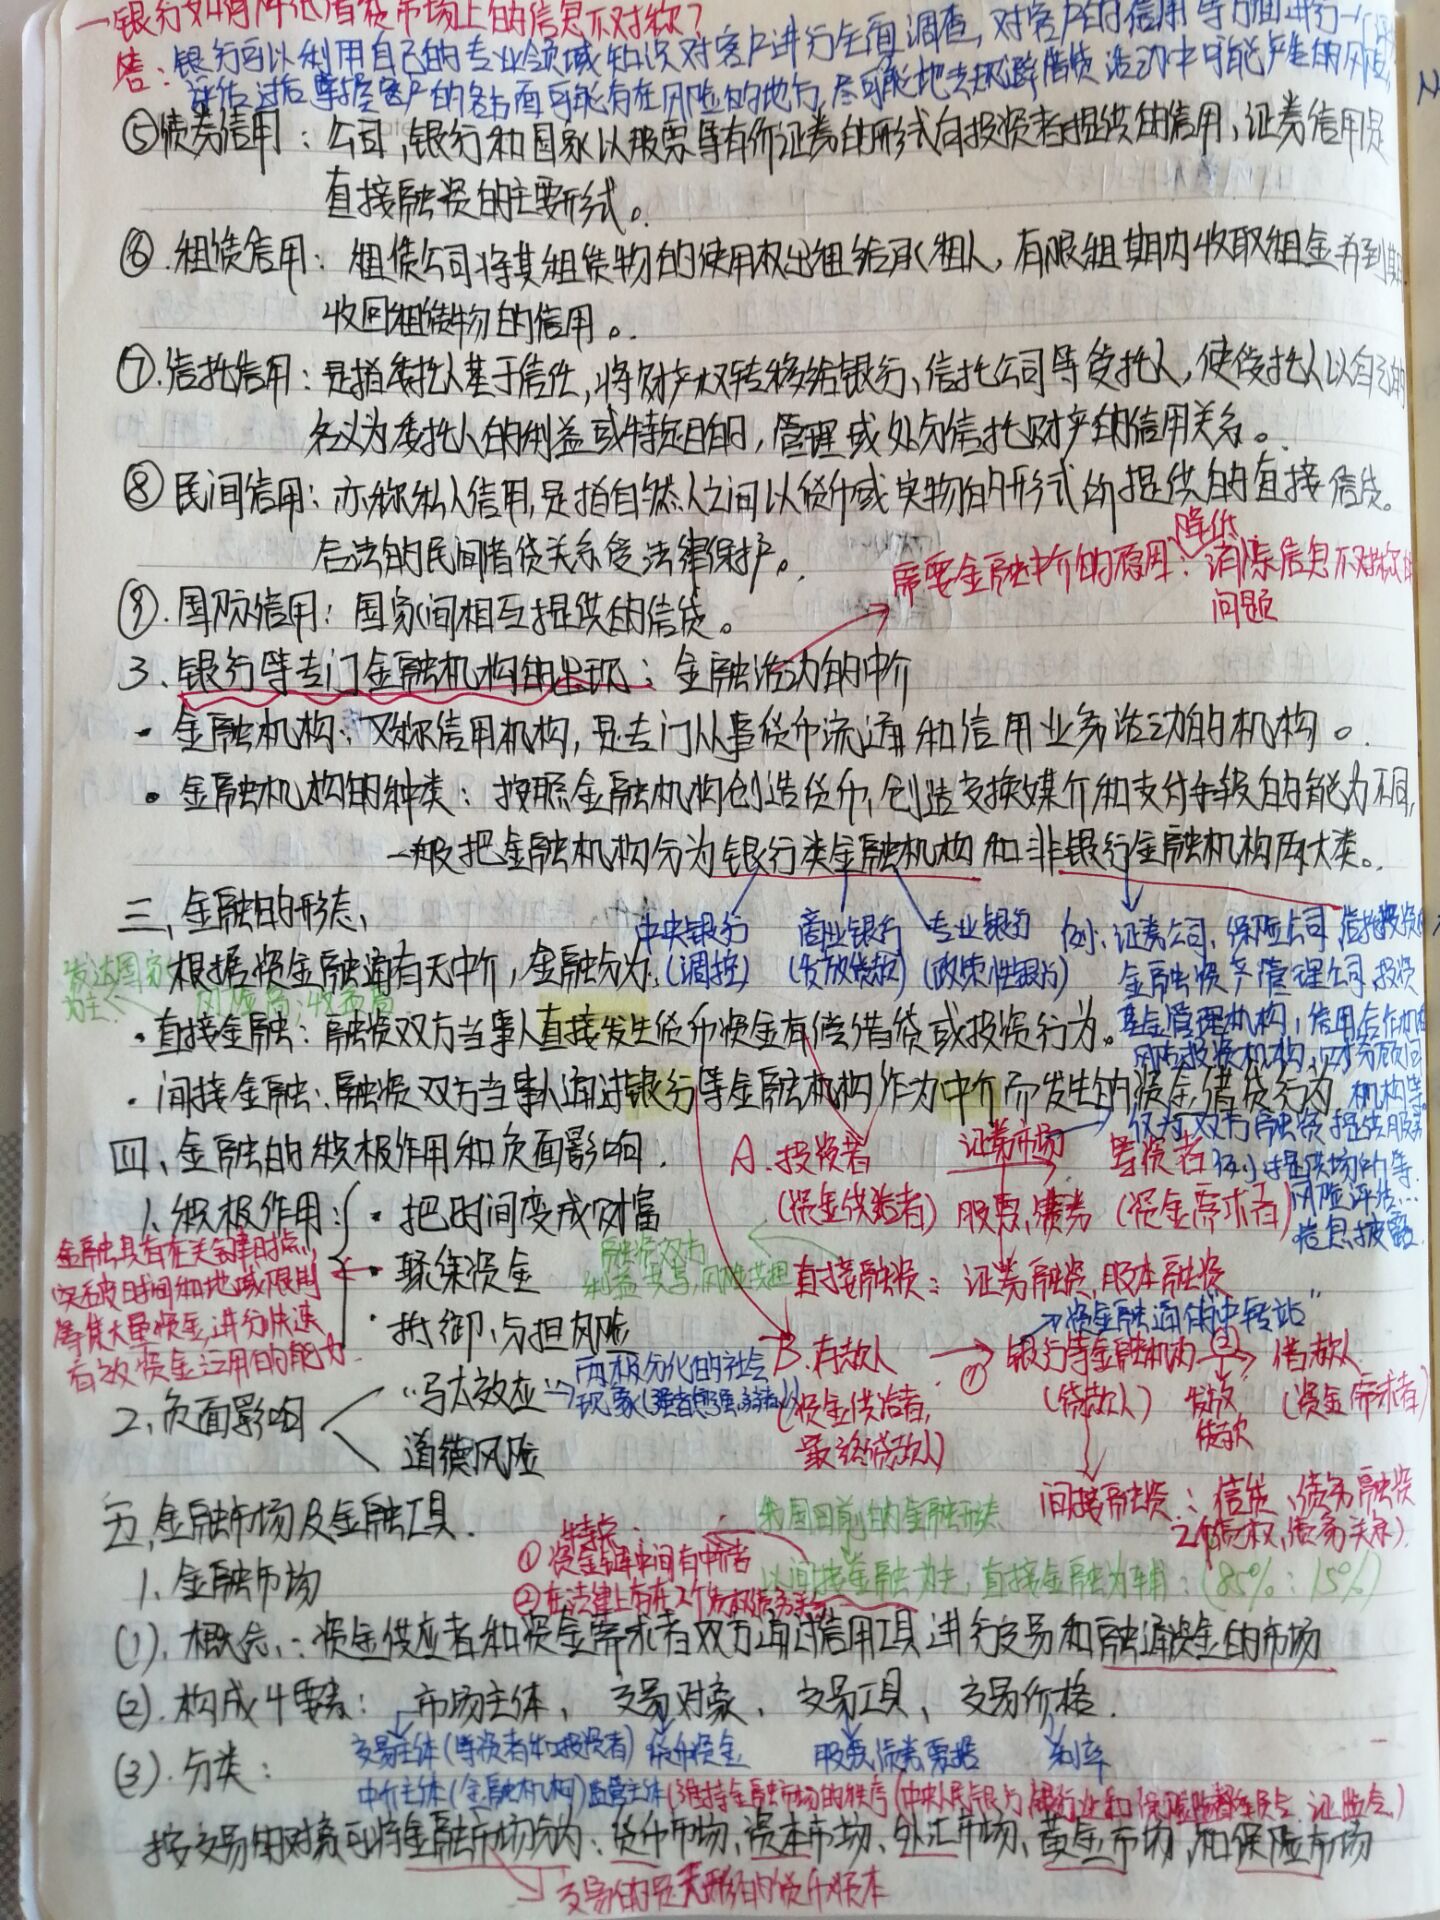 一银行如何降低借贷市场上的信息不对称?
答:银行可以利用自己的专业领域知识对客户进行全面调查,对客户的信用等方面进行一个
评估过后掌握客户的各方面可能存在风险的地方,尽可能地去规避借贷活动中可能产生的风险
⑤债券信用:公司,银行和国家以股票等有价证券的形式向投资者提供的信用,证券信用是
直接融资的主要形式。
⑥.租赁信用:租赁公司将其租赁物的使用权出租给承租人,有限租期内收取租金并到期
收回租赁物的信用。
⑦.信托信用:是指委托人基于信任,将财产权转移给银行、信托公司等受托人,使受托人以自己的
名义为委托人的利益或特定目的,管理或处分信托财产的信用关系。
⑧民间信用:亦称私人信用,是指自然人之间以货币或实物的形式所提供的直接信贷。
合法的民间借贷关系受法律保护。
需要金融中介的原因:消除信息不对称的
降低
问题
⑨.国际信用:国家间相互提供的信贷。
3、银行等专门金融机构的出现:金融活动的中介
·金融机构:又称信用机构,是专门从事货币流通和信用业务活动的机构。
·金融机构的种类:按照金融机构创造货币,创造交换媒介和支付手段的能力不同,
一般把金融机构分为银行类金融机构和非银行金融机构两大类。
三、金融的形态、
中央银行 商业银行 专业银行 例:证券公司、保险公司
(调控) (发放贷款) (政策性银行) 金融资产管理公司 投资
发达国家
为主
根据资金融通有无中介,金融分为:
风险高;收益高
·直接金融:融资双方当事人直接发生货币资金有偿借贷或投资行为。
基金管理机构,信用合作机构
风险投资机构,财务顾问
机构等
·间接金融:融资双方当事人通过银行等金融机构作为中介而发生的资金借贷行为
仅为双方融资提供服务
例:提供场所等
风险评估...
信息披露
四、金融的积极作用和负面影响.
A.投资者 证券市场 筹资者
(资金供给者) 股票、债券 (资金需求者)
1、积极作用:
·把时间变成财富
·聚集资金
·抵御、分担风险
金融具有在关键时点,
突破时间和地域限制
筹集大量资金,进行快速
有效资金运用的能力.
融资双方
利益共享,风险共担
直接融资:证券融资,股本融资
资金融通的"中转站"
B.存款人 ① 银行等金融机构 ② 借款人
(资金供给者, (贷款人) 发放 (资金需求者)
最终贷款人) 贷款
2、负面影响
"马太效应"
两极分化的社会
现象(强者愈强,弱者愈弱)
道德风险
间接融资:信贷、债务融资
2个债权,债务关系).
五、金融市场及金融工具.
我国目前的金融形态
以间接金融为主,直接金融为辅:(85%:15%)
特点:
①资金链中间有中介者
②在法律上存在2个债权债务关系
1、金融市场
(1).概念:资金供应者和资金需求者双方通过信用工具进行交易和融通资金的市场
(2).构成4要素:市场主体、交易对象、交易工具、交易价格.
交易主体(筹资者和投资者) 货币资金 股票债券票据 利率
中介主体(金融机构)监管主体(维持金融市场的秩序(中央人民银行 银行业和保险监督委员会 证监会)
(3).分类:
按交易的对象可将金融市场分为:货币市场、资本市场、外汇市场、黄金市场、和保险市场
交易的是无形的货币资本